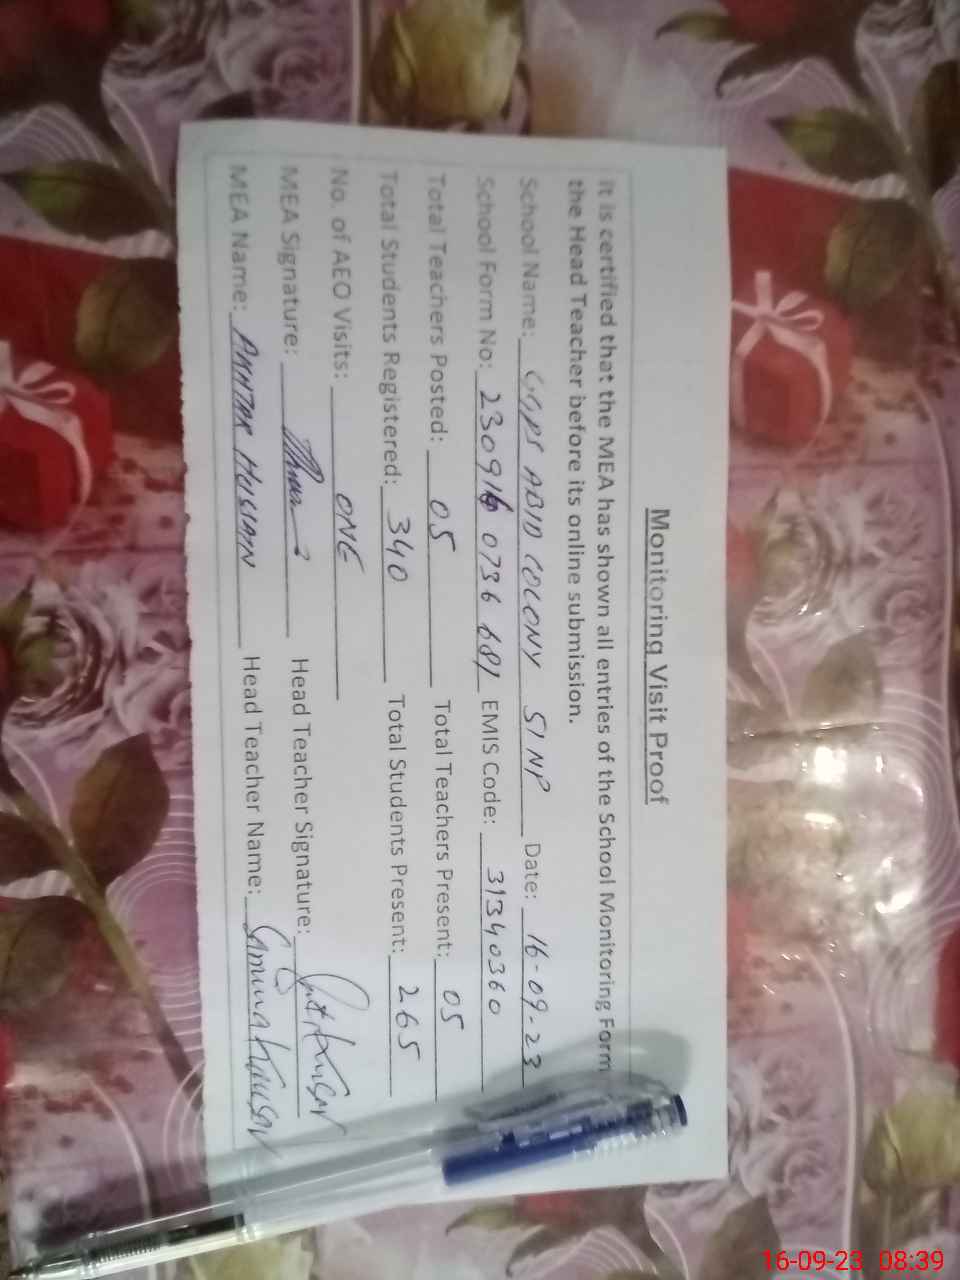 Monitoring Visit Proof
It is certified that the MEA has shown all entries of the School Monitoring Form
the Head Teacher before its online submission.
School Name: GGPS ABID COLONY SINP Date: 16-09-23
School Form No: 230916 0736 681 EMIS Code: 31340360
Total Teachers Posted: 05 Total Teachers Present: 05
Total Students Registered: 340 Total Students Present: 265
No. of AEO Visits: ONE
MEA Signature: Head Teacher Signature:
MEA Name: AKHTAR HUSSAIN Head Teacher Name: Samina Kausar
16-09-23 08:39